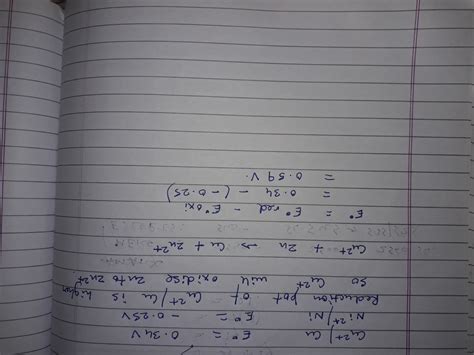 Cu²⁺/Cu E° = 0.34 V
Ni²⁺/Ni E° = - 0.25V
Reduction pot of Cu²⁺/Cu is higher
so Cu²⁺ will oxidise Zn to Zn²⁺
Cu²⁺ + Zn → Cu + Zn²⁺
E° = E° red - E° oxi
= 0.34 - (-0.25)
= 0.59 V.